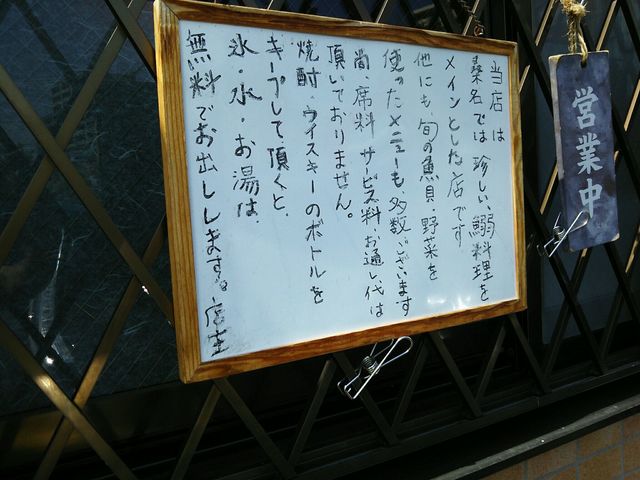 当店は
桑名では珍しい、鰯料理を
メインとした店です
他にも旬の魚貝 野菜を
使ったメニューも多数ございます
尚、席料 サービス料、お通し代は
頂いておりません。
焼酎・ウイスキーのボトルを
キープして頂くと、
氷・水・お湯は、
無料でお出しします。店主
営業中